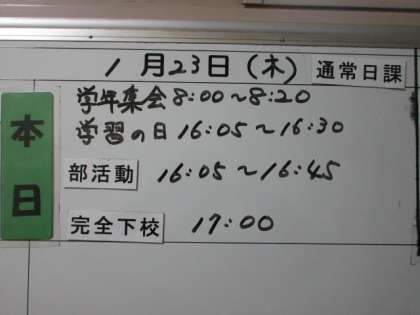 1月23日(木) 通常日課
本日
学年集会 8:00~8:20
学習の日 16:05~16:30
部活動 16:05~16:45
完全下校 17:00